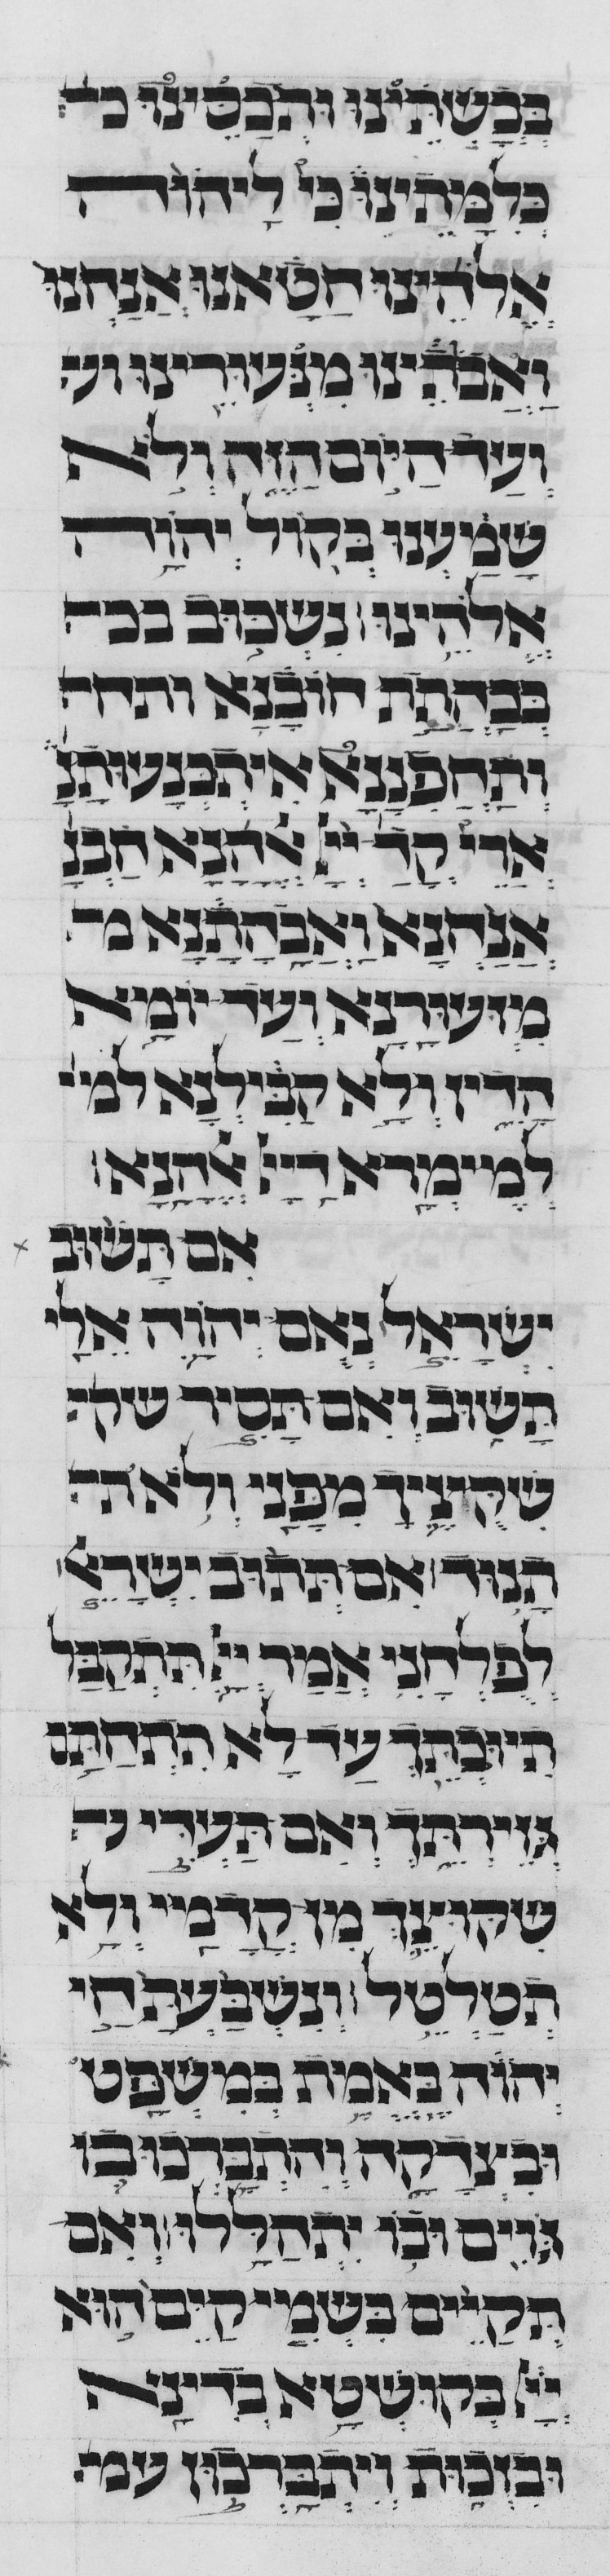 בבשתינו ותכסינו כל
כלמתינו כי ליהוה
אלהינו חטאנו אנחנו
ואבתינו מנעורינו וע
ועד היום הזה ולא
שמענו בקול יהוה
אלהינו נשכוב בבה
בבהתת חובנא ותח
ותחפננא אתכנעותנ
ארי קדם ייי אלהנא חבנ
אנחנא ואבהתנא מ
מזעורנא ועד יומא
הדין ולא קבילנא למי
למימרא דייי אלהנא
אם תשוב
ישראל נאם יהוה אלי
תשוב ואם תסיר שק
שקוציך מפני ולא ת
תנוד אם תתוב ישראל
לפלחני אמר ייי תתקבל
תיובתך עד לא תתחתם
גזירתך ואם תעדי
שקוצך מן קדמיי ולא
תטלטל ונשבעת חי
יהוה באמת במשפט
ובצדקה והתברכו בו
גוים ובו יתהללו ואם
תקיים בשמי קיים הוא
ייי בקושטא בדינא
ובזכות ויתברכון עמ